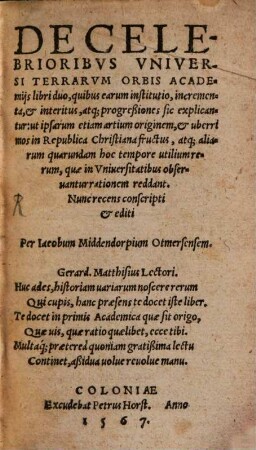 DE CELE-
BRIORIBVS VNIVER-
SI TERRARVM ORBIS ACADE-
mijs libri duo, quibus earum institutio, incremen-
ta, & interitus, atq; progreßiones sic explican-
tur: ut ipsarum etiam artium originem, & uberri
mos in Republica Christiana fructus, atq; alia-
rum quarundam hoc tempore utilium re-
rum, quæ in Vniuersitatibus obser-
uantur rationem reddant.
Nunc recens conscripti
& editi
Per Iacobum Middendorpium Otmersensem.
Gerard. Matthisius Lectori.
Huc ades, historiam uariarum noscere rerum
Qui cupis, hanc præsens te docet iste liber.
Te docet in primis Academica quæ sit origo,
Quæ uis, quæ ratio quælibet, ecce tibi.
Multaq; prætereà quoniam gratißima lectu
Continet, aßidua uolue reuolue manu.
COLONIAE
Excudebat Petrus Horst. Anno
1567.